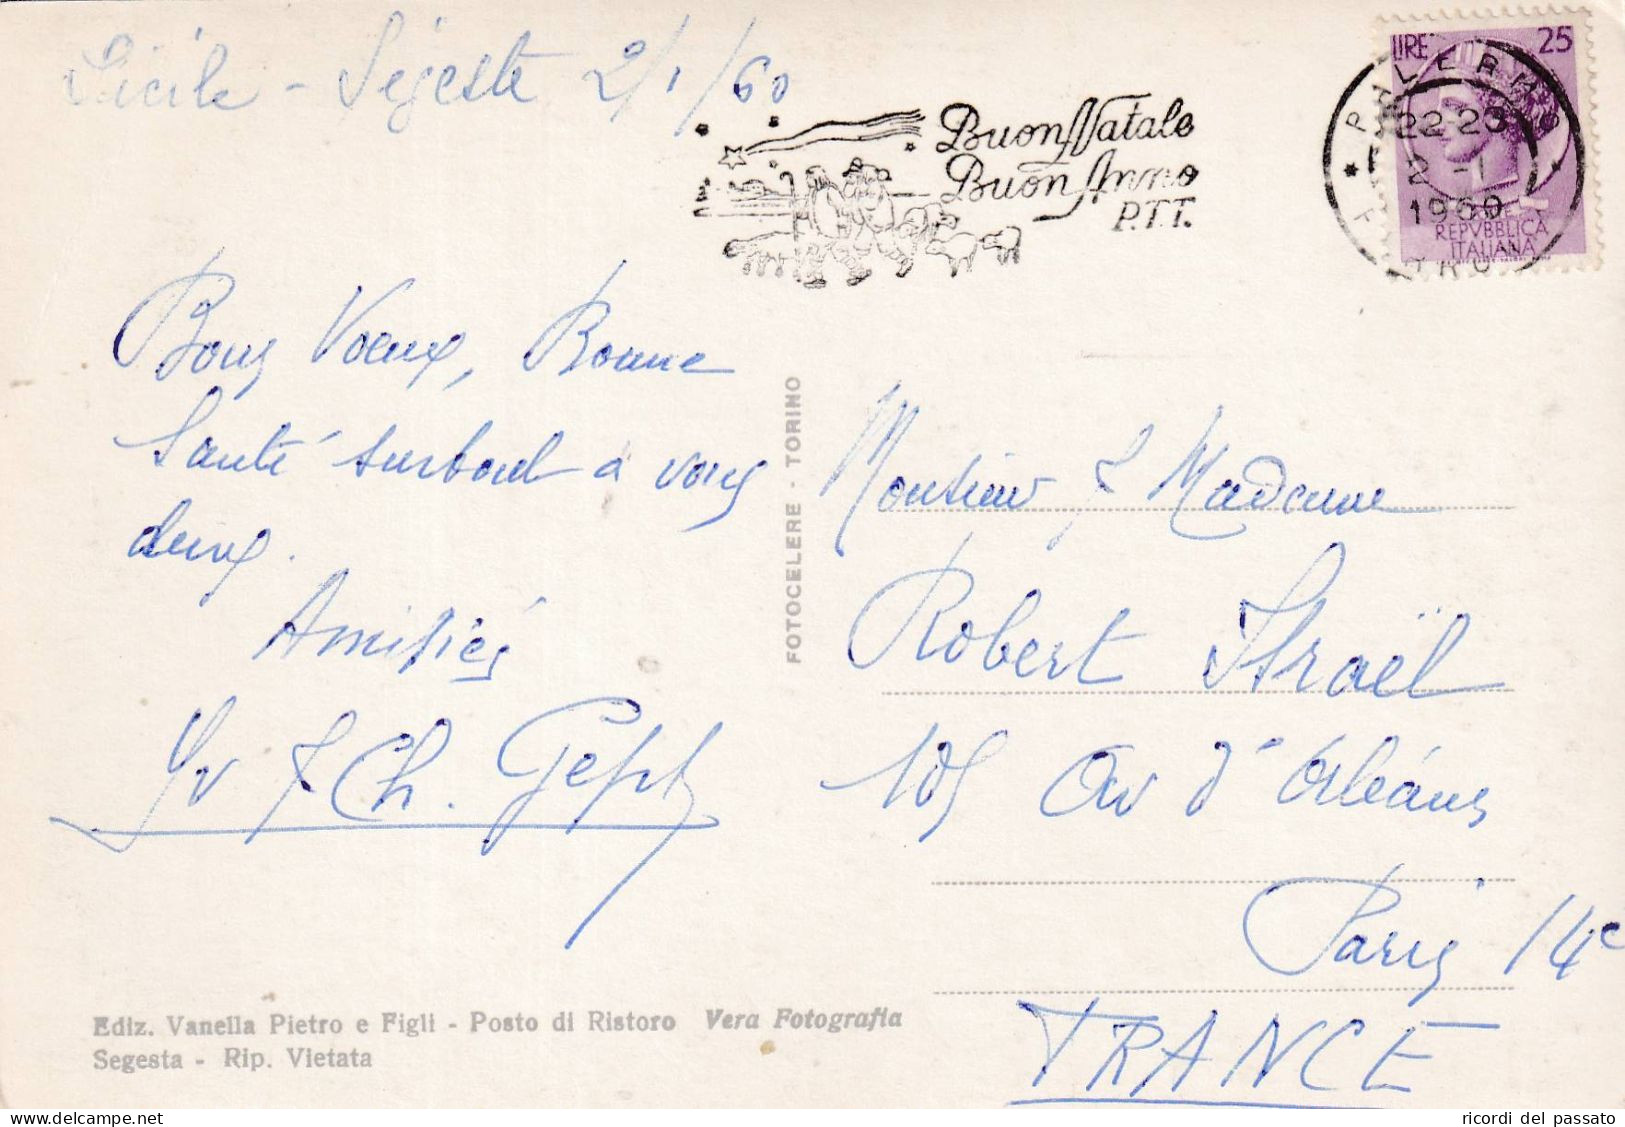 Sicile -Ségeste 2/1/60
Buon Natale
Buon Anno
P.T.T.
LIRE 25
PALERMO
22-23
2 - 1
1960
REPVBBLICA
ITALIANA
Bons Voeux, Bonne
Santé surtout à vous
deux.
Amitiés
Yv & Ch.
FOTOCELERE - TORINO
Monsieur & Madame
Robert Israël
105 Av d'Orléans
Paris 14e
FRANCE
Ediz. Vanella Pietro e Figli - Posto di Ristoro Vera Fotografia
Segesta - Rip. Vietata
ricordi del passato